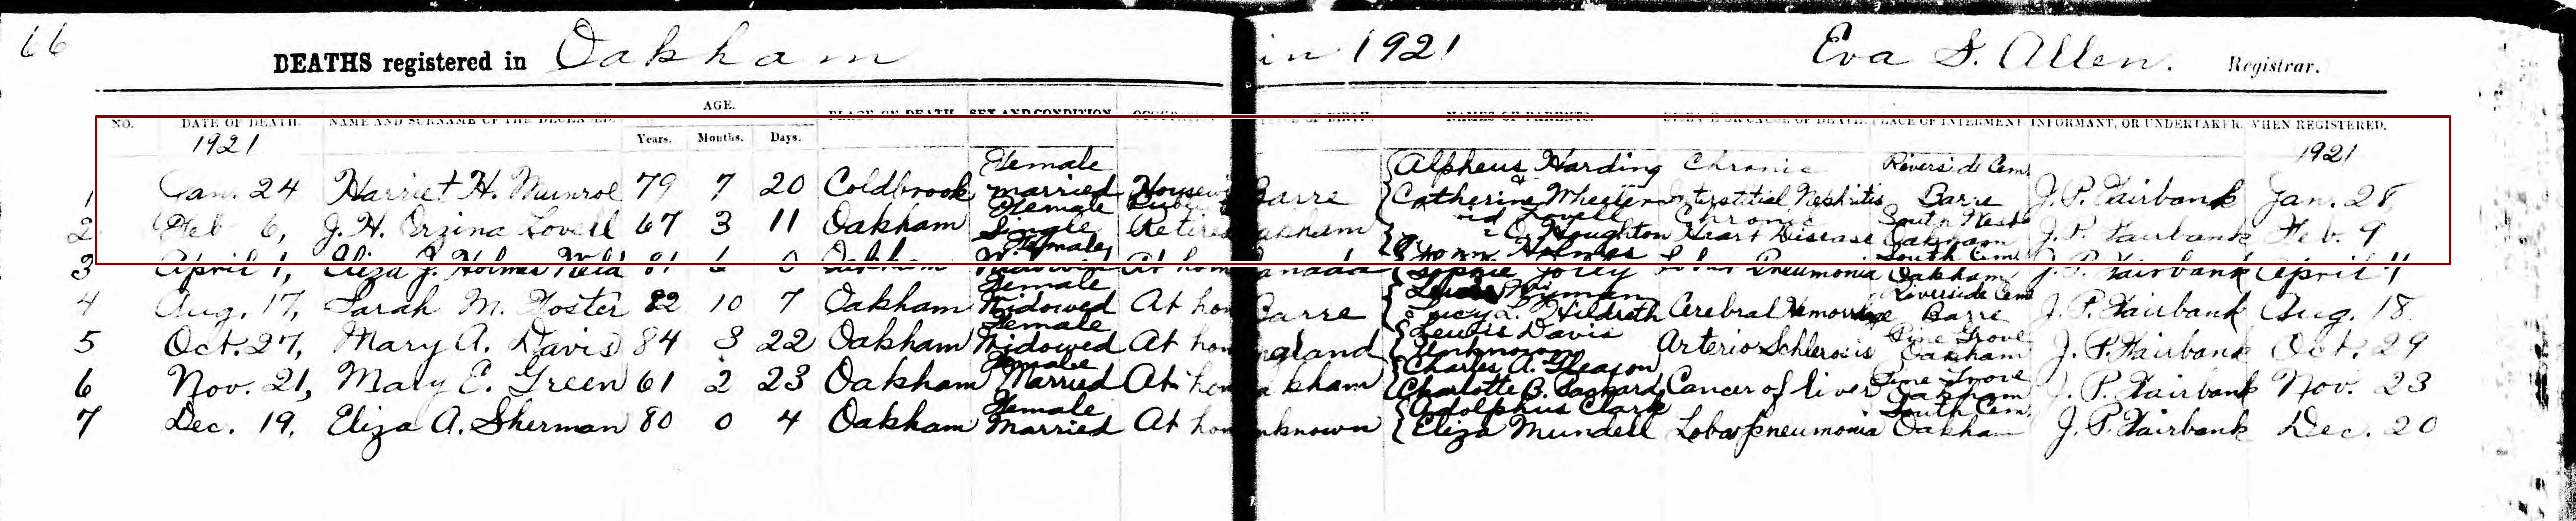 66
DEATHS registered in Oakham in 1921 Eva S. Allen. Registrar.
AGE.
NO. DATE OF DEATH. NAME AND SURNAME OF THE DECEASED. Years. Months. Days. PLACE OF DEATH. SEX AND CONDITION NAMES OF PARENTS. CAUSE OF DEATH. PLACE OF INTERMENT INFORMANT, OR UNDERTAKER. WHEN REGISTERED.
1921 1921
Female Alpheus Harding Chronic Riverside Cem.
1 Jan. 24 Harriet H. Munroe 79 7 20 Coldbrook married Housew Barre Catherine Wheeler Interstitial Nephritis Barre J. P. Fairbank Jan. 28
Female Lovell Chronic South West
2 Feb 6, J. H. Orzina Lovell 67 3 11 Oakham Single Retired akham Houghton Heart Disease Oakham J. P. Fairbank Feb. 9
Female Holmes South Cem.
3 April 1, Eliza J. Holmes 81 6 0 Oakham At hom anada Sophie Pneumonia Oakham J. P. Fairbank April 4
Female Lyman Riverside Cem
4 Aug. 17, Sarah M. Foster 82 10 7 Oakham Widowed At hom Barre Lucy L. Hildreth Cerebral Hemorrhage Barre J. P. Fairbank Aug. 18
Female Davis Pine Grove
5 Oct. 27, Mary A. Davis 84 3 22 Oakham Widowed At hom ngland Unknown Arterio Schlerosis Oakham J. P. Fairbank Oct. 29
Female Charles A. Gleason Pine Grove
6 Nov. 21, Mary E. Green 61 2 23 Oakham Married At hom kham Charlotte B. Packard Cancer of liver Oakham J. P. Fairbank Nov. 23
Female Adolphus Clark South Cem.
7 Dec. 19, Eliza A. Sherman 80 0 4 Oakham Married At hom nknown Eliza Mundell Lobar pneumonia Oakham J. P. Fairbank Dec. 20